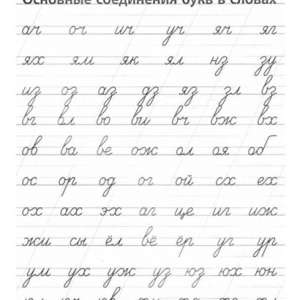 Основные соединения букв в словах
ач оч ич уч яч яг
ях ям як ял нз зу
из оз аз дз яз зл вз
вг вл во ви вч вж вх
ов ва ве ож ол оя об
ос ор од ог ой сх ех
ох ах эх аг це иг иж
жи сы ёл вё ёр уг ур
ум ух уж уз юз юх юн